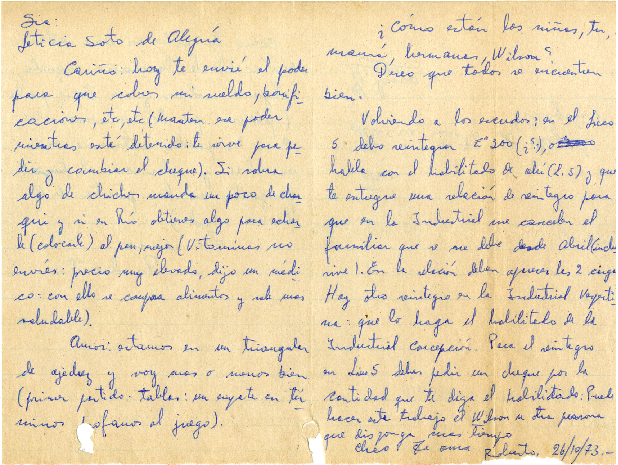 Sra:
Leticia Soto de Alegría
Cariño: hoy te envié el poder
para que cobres mi sueldo, bonifi
caciones, etc, etc (Manten ese poder
mientras esté detenido: te sirve para pe-
dir y cambiar el cheque). Si sobra
algo de chiches manda un poco de cha-
qui y si en Río obtienes algo para echar
le (colocarle) al pan, mejor (Vitaminas no
envíes: precio muy elevado, dijo un médi-
co: con ello se compra alimentos y sale mas
saludable).
Amor: estamos en un triangular
de ajedrez y voy mas o menos bien
(primer partido: tablas: un empate en tér
minos profanos al juego).
¿Cómo están las niñas, tu,
mamá, hermanas, Wilson?
Deseo que todos se encuentren
bien.
Volviendo a los escudos: en el Liceo
5 debo reintegrar Eº 300 (¿?), o
habla con el habilitado de ahí (L. 5) y que
te entregue una relación de reintegro para
que en la Industrial me cancelen el
familiar que se me debe desde Abril
. En la relación deben aparecer las 2 cargas
Hay otro reintegro en la Industrial Vesperti
na: que lo haga el habilitado de la
Industrial Concepción. Para el reintegro
en Liceo 5 debes pedir un cheque por la
cantidad que te diga el habilitado. Puede
hacer este trabajo el Wilson u otra persona
que disponga mas tiempo
Chao Te ama Roberto. 26/10/73.-